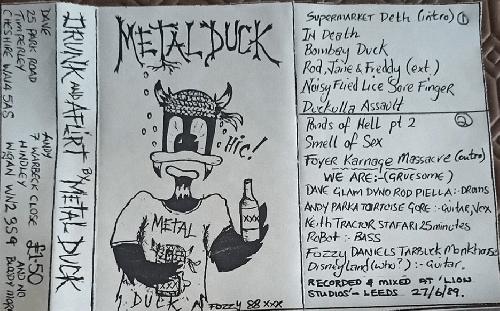 DAVE
25 PARK ROAD
TIMPERLEY
CHESHIRE WA14 5AS
ANDY
7 WARBECK CLOSE
HINDLEY
WIGAN WN2 3S9
£1.50
AND NO
BLOODY MORE
DRUNK AND AFLIRT BY METAL DUCK
METAL DUCK
Hic!
XXX
METAL
DUCK
FOZZY 88 XXX
SUPERMARKET Deth (intro) ①
In Death
Bombay Duck
Rod, Jane & Freddy (ext.)
Noisy Flied Lice Sore Finger
Duckulla Assault
②
Ponds of Hell pt 2
Smell of Sex
Foyer Karnage Massacre (outro)
WE ARE:- (GRUESOME)
DAVE GLAM DYNO ROD PIELLA:- DRUMS
ANDY PARKA TORTOISE GORE:- GUITAR, Vox
Keith TRACTOR STAFARI 25 minutes
RoBoT:- BASS
Fozzy DANIELS TARBUCK Monkhouse
Disneyland (who?):- Guitar.
RECORDED & MIXED AT 'LION
STUDIOS'- LEEDS 27/6/89.